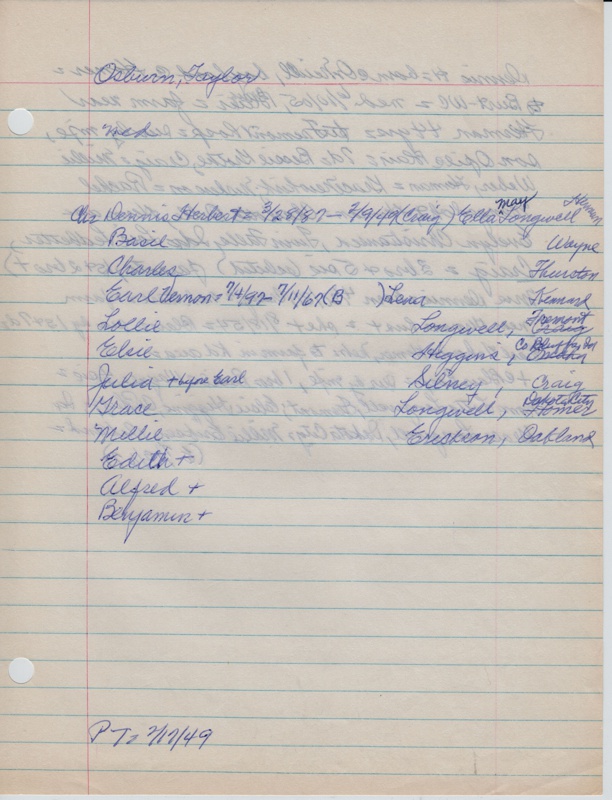 Osburn, Taylor
med
Chr Dennis Herbert = 3/28/87 - 2/9/49 (Craig) Ella May Longwell Herman
Basil Wayne
Charles Thurston
Earl Vernon = 7/4/92 - 7/11/67 (B ) Lena
Lollie Longwell, Fremont Craig
Elsie Higgins, Co Bluffs Omaha
Julia + byre Earl Sidney, Craig
Grace Longwell, Dakota City Homer
Millie Erickson, Oakland
Edith +
Alfred +
Benjamin +
PT = 2/17/49